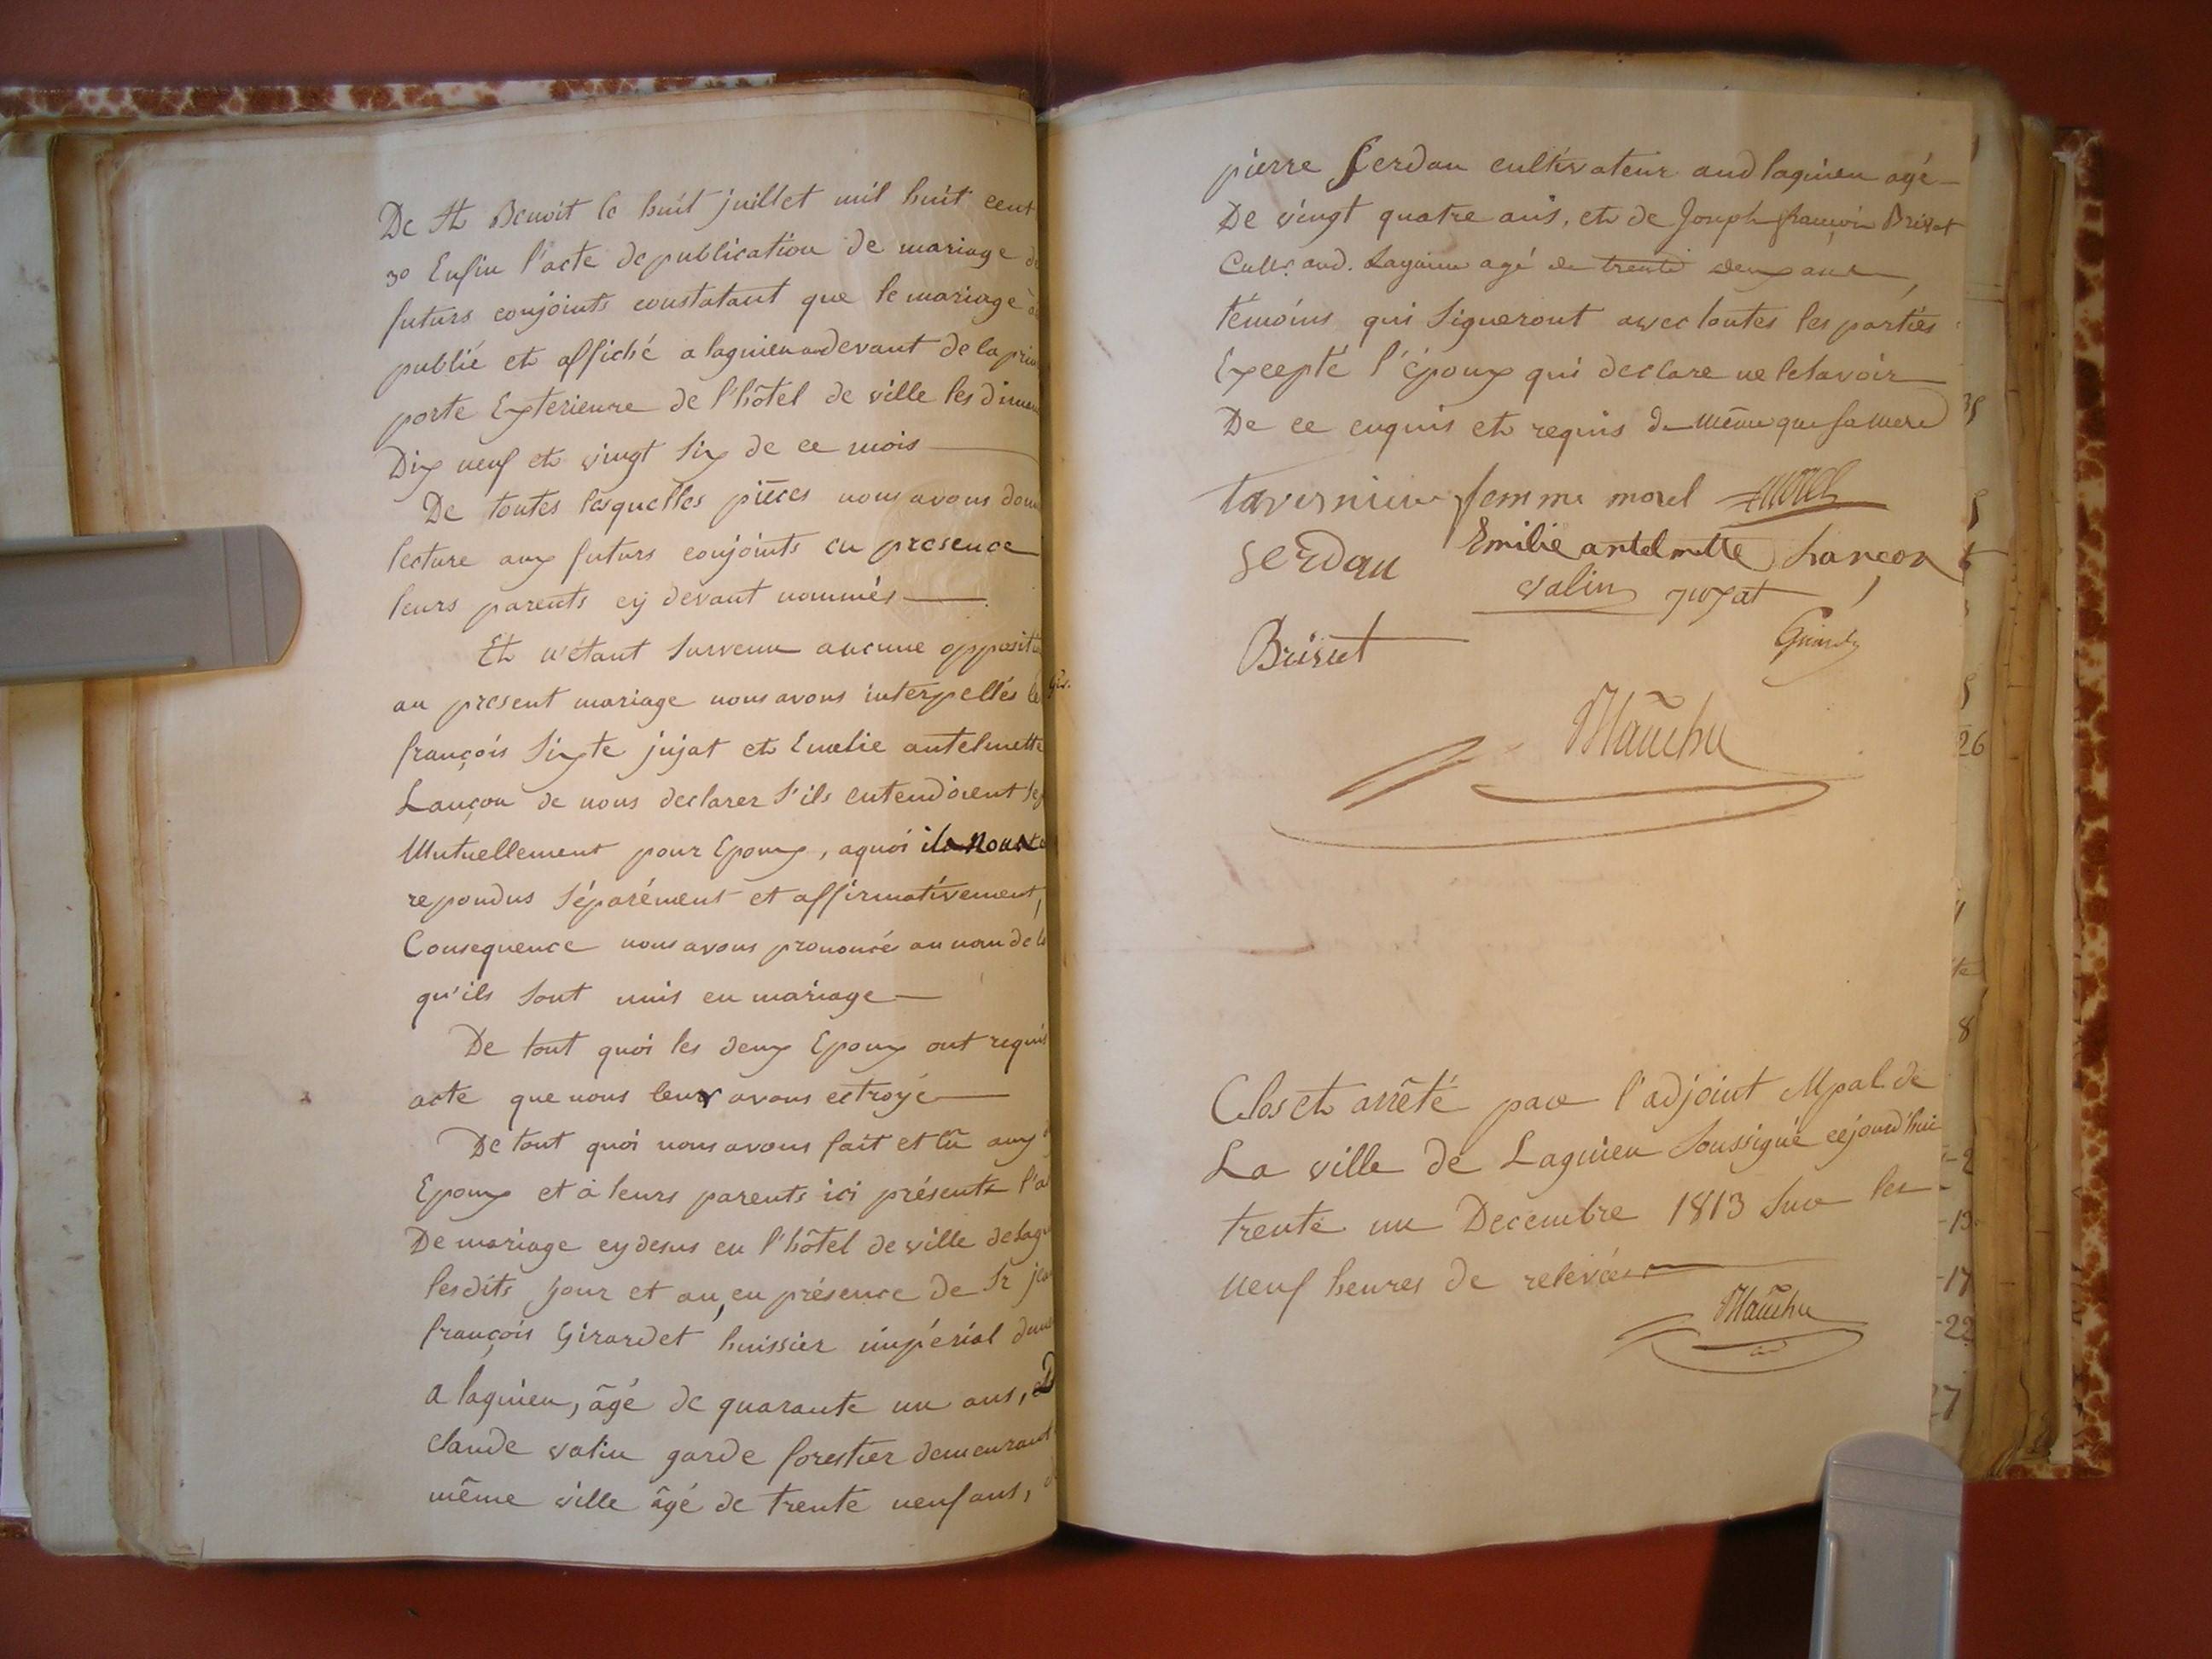 De St Benoit le huit juillet mil huit cent
3o Enfin l'acte de publication de mariage de
futurs conjoints constatant que le mariage a
publié et affiché a lagnieu audevant de la prin
porte Exterieure de l'hôtel de ville les diman
Dix neuf et vingt Six de ce mois
De toutes lesquelles pièces nous avons donn
lecture aux futurs conjoints en presence
leurs parents cy devant nommés
Et n'étant Survenu aucune oppositi
au present mariage nous avons interpellés le
françois Sixte jujat et Emelie antelmette
Lançon de nous declarer S'ils entendoient Se
Mutuellement pour Epoux, aquoi ils nous
repondus Séparément et affirmativement,
Consequence nous avons prononcés au nom de l
qu'ils Sont unis en mariage
De tout quoi les deux Epoux ont requis
acte que nous leur avons octroyé
De tout quoi nous avons fait et lû aux
Epoux et à leurs parents ici présents l'a
De mariage cy desus en l'hôtel de ville de lagn
lesdits jour et an, en présence de Sr jea
françois Girardet huissier impérial dem
a lagnieu, âgé de quarante un ans, D
claude valin garde forestier demeurant
même ville âgé de trente neuf ans,
pierre Serdau cultivateur aud lagnieu agé
De vingt quatre ans, et de Joseph françois Briset
Cultr aud. Lagnieu agé de trente deux ans,
témoins qui Signeront avec toutes les parties
Excepté l'époux qui declare ne le Savoir
De ce enquis et requis de même que Sa mere
tavernier femme morel morel
Serdau Emilie antelmette Lançon
valin jujat
Brisset Girardet
Mauchu
26
8
Clos et arrêté par l'adjoint Mpal de
La ville de Lagnieu Soussigné cejourd'hui
trente un Decembre 1813 Sur les
neuf heures de relevée
Mauchu
-2
-13
-17
-22
27